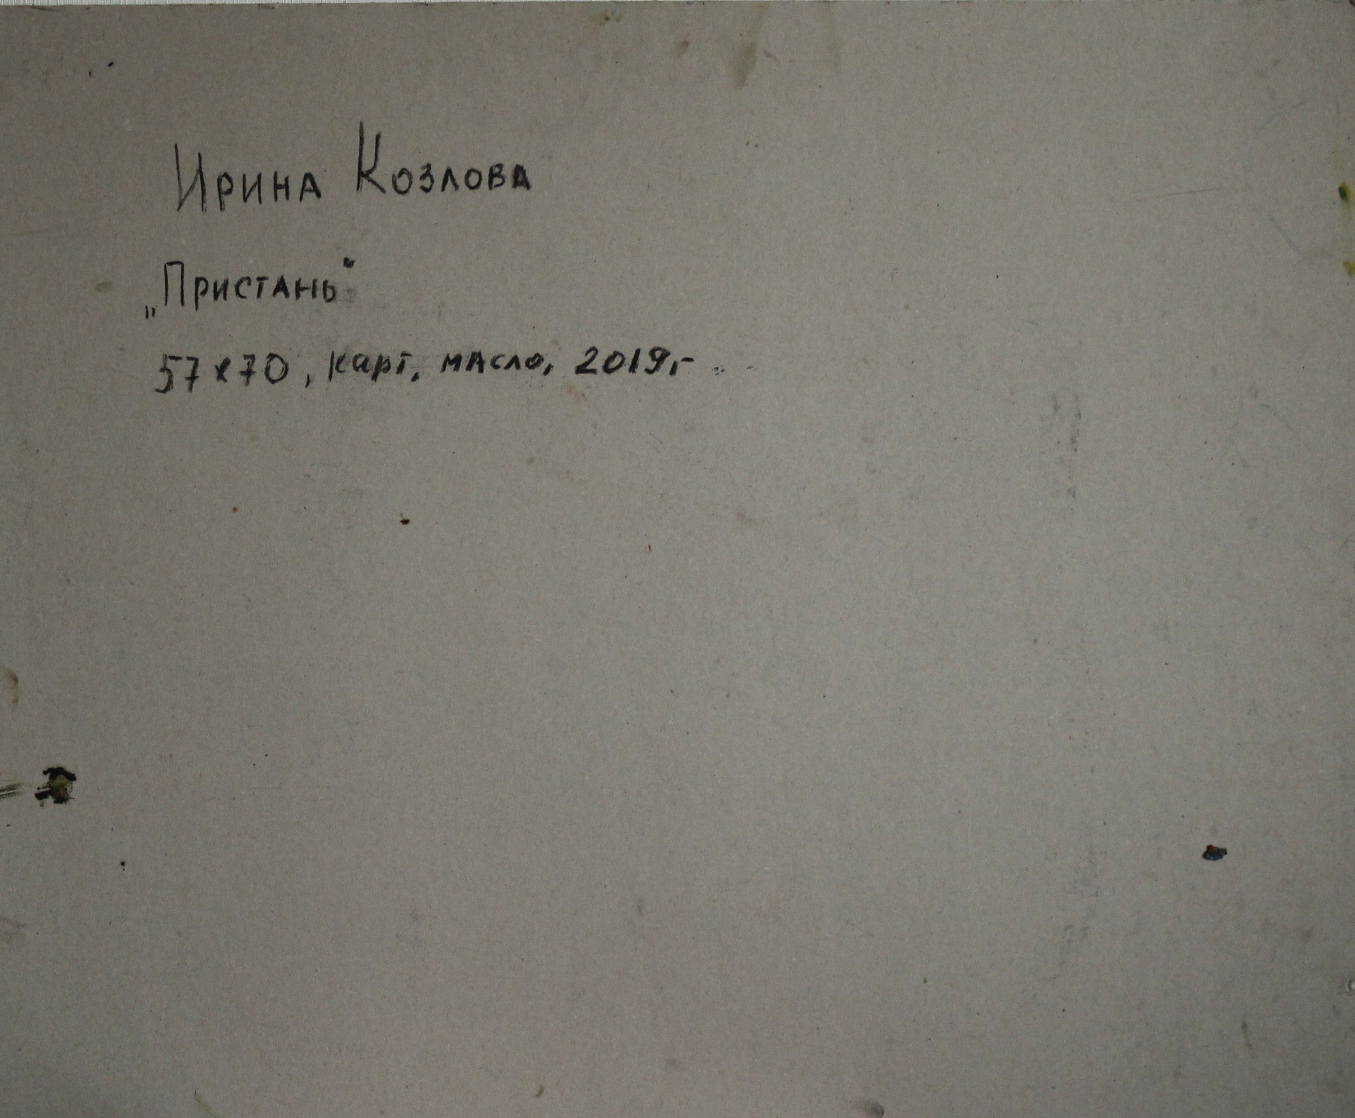 Ирина Козлова
„Пристань“
57x70, карт, масло, 2019г.